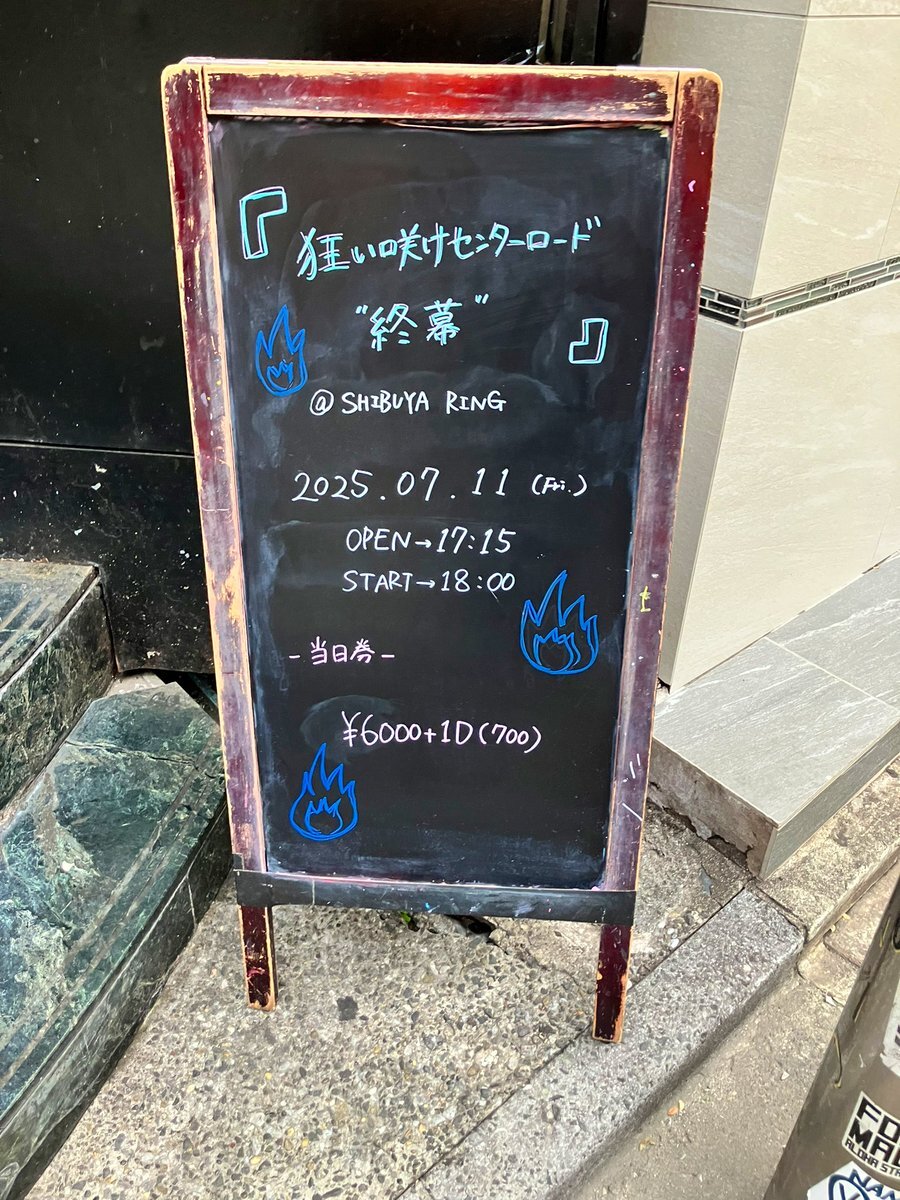 『狂い咲けセンターロード
"終幕"』
@ SHIBUYA RING
2025.07.11 (Fri.)
OPEN→17:15
START→18:00
-当日券-
¥6000+1D(700)
ALOHA